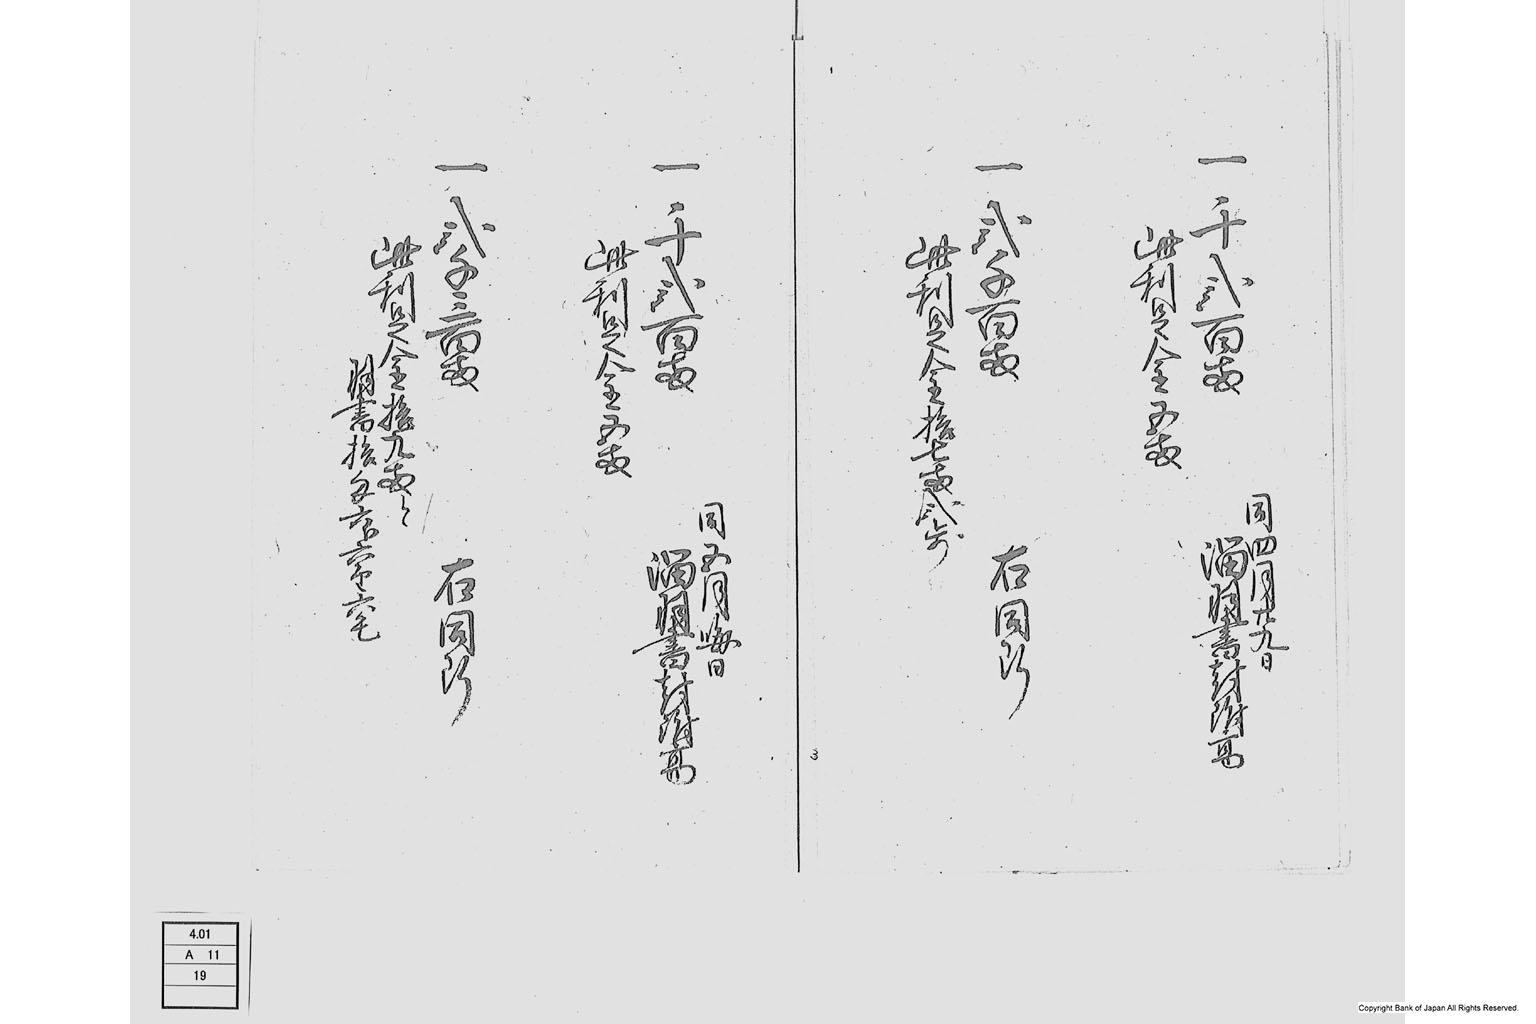 一 千弐百両
同四月廿九日
溜預書封附高
此利足金五両
一 弐千百両
右同断
此利足金拾七両弐歩
一 千弐百両
同五月晦日
溜預書封附高
此利足金五両
一 弐千三百両
右同断
此利足金拾九両ト
書拾匁
3
4.01
A 11
19
Copyright Bank of Japan All Rights Reserved.